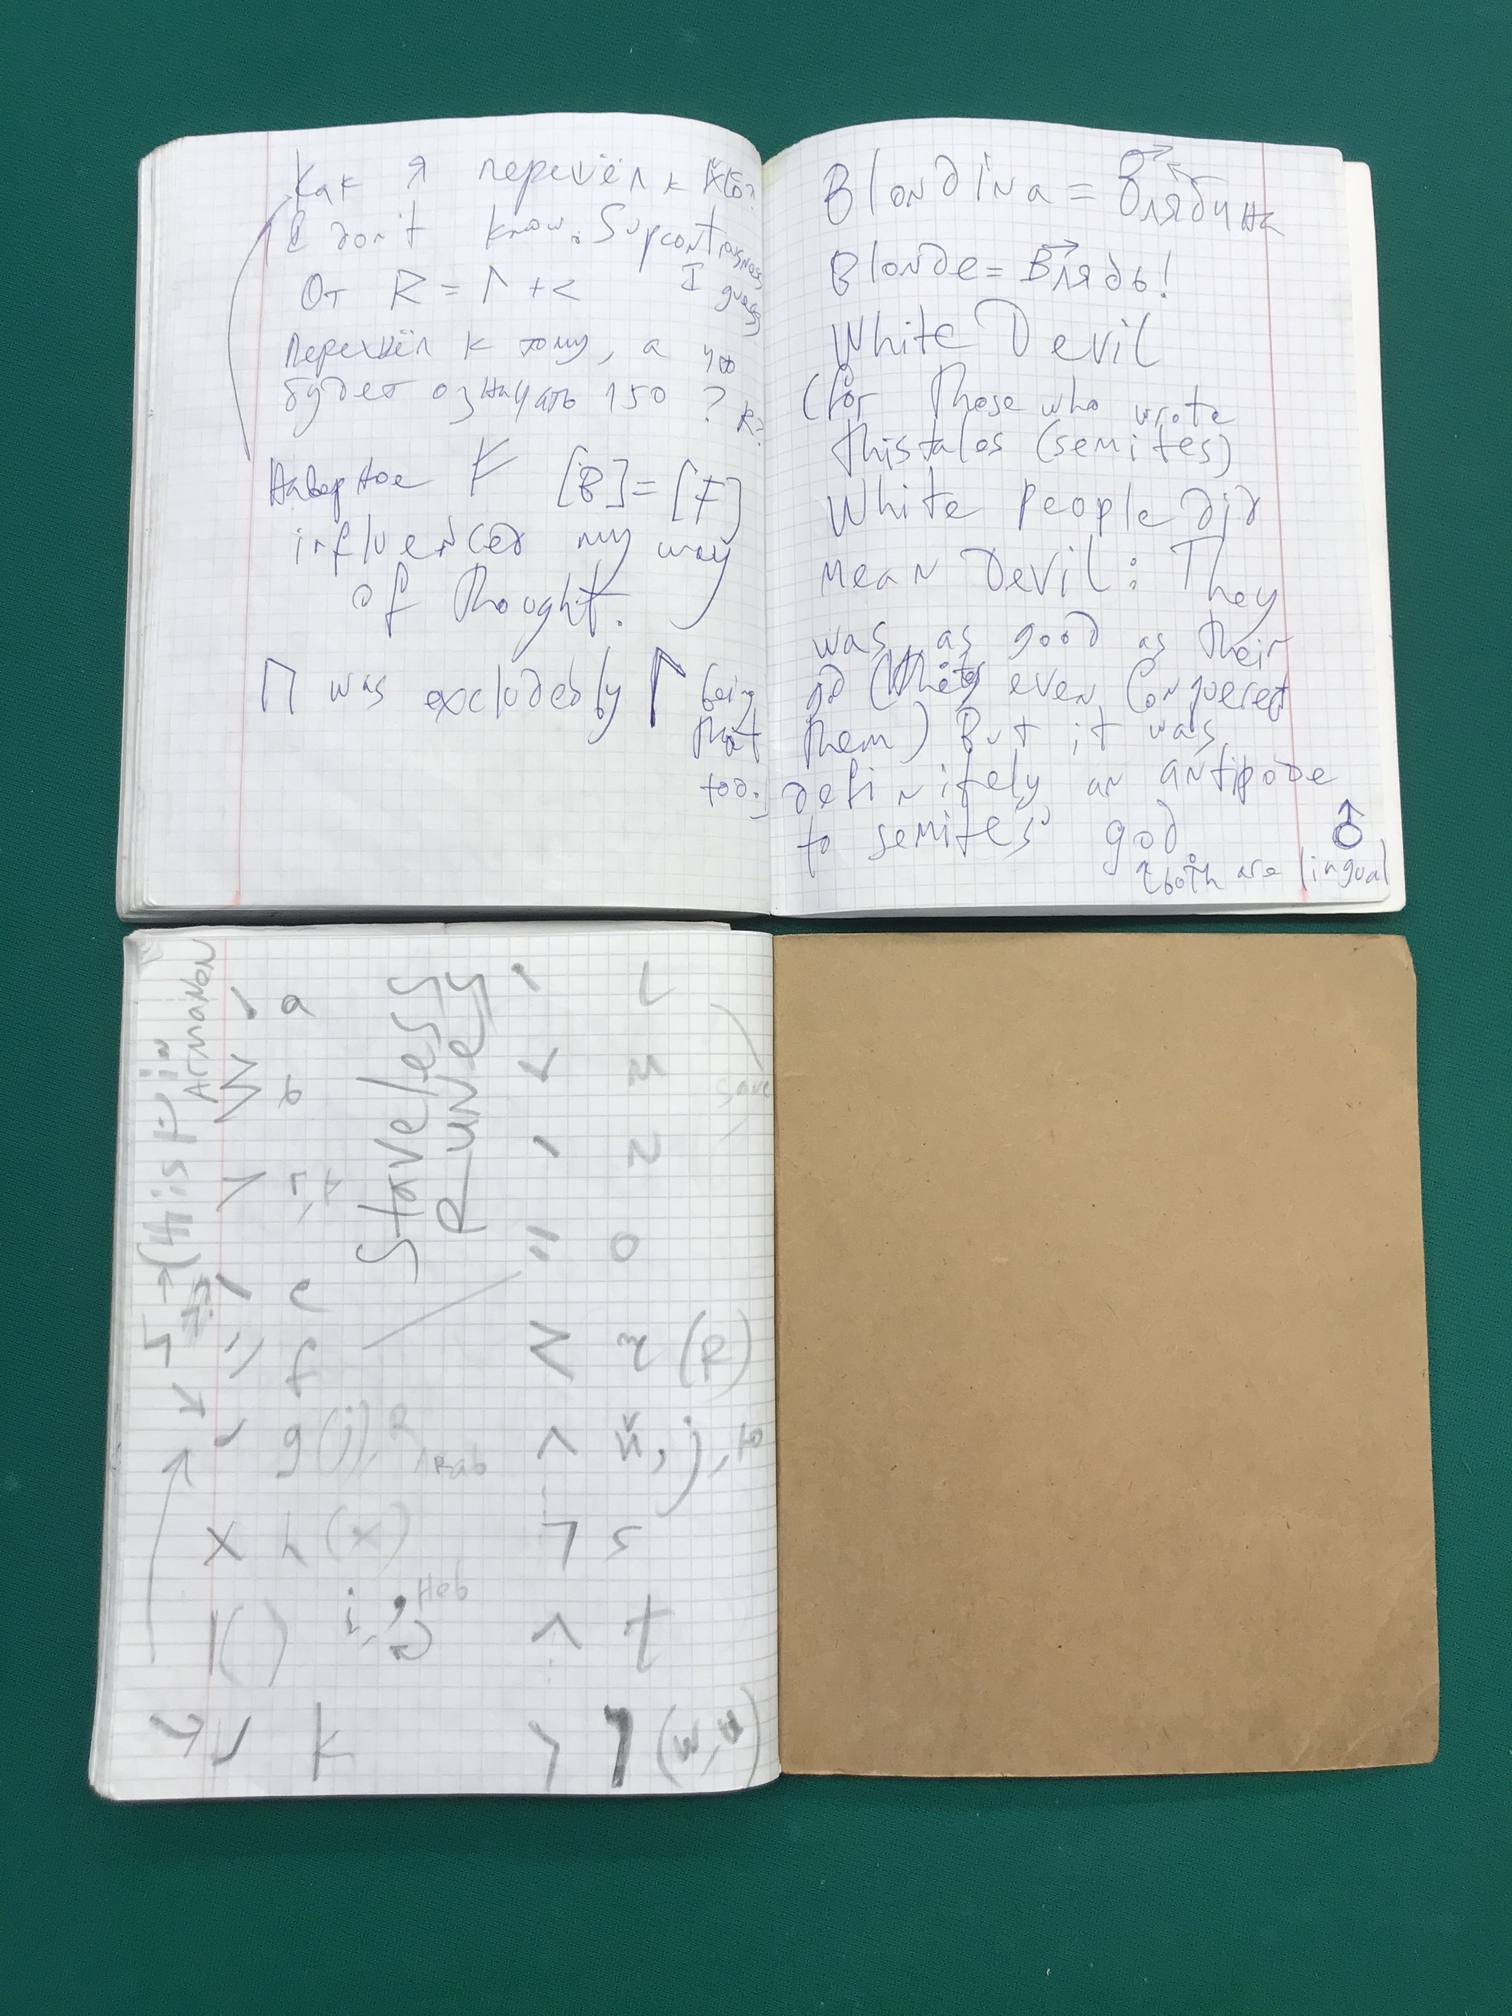 Как я перешёл к
I don't know. Supconts I guess
От R = Г + <
перешёл к тому, а что
будет означать 150 ? R?
Наверное F [B] = [F]
influenced my way
of thought.
П was excluded by Г being that too.
Blondina = Влябина
Blonde = Влядь!
White Devil
(for those who wrote
this talos (semites)
White people did
mean Devil: They
was as good as their
gd ( even conquered
them) But it was
definitely an antipode
to semites' god ♂
both are lingual
(this Þ in
Armanen
Staveless
Runes
a
b
e
f
g(j), R
Arab
x h (x)
Heb
k
L
save
o
(R)
й, j, ю
s
t
(w, u)